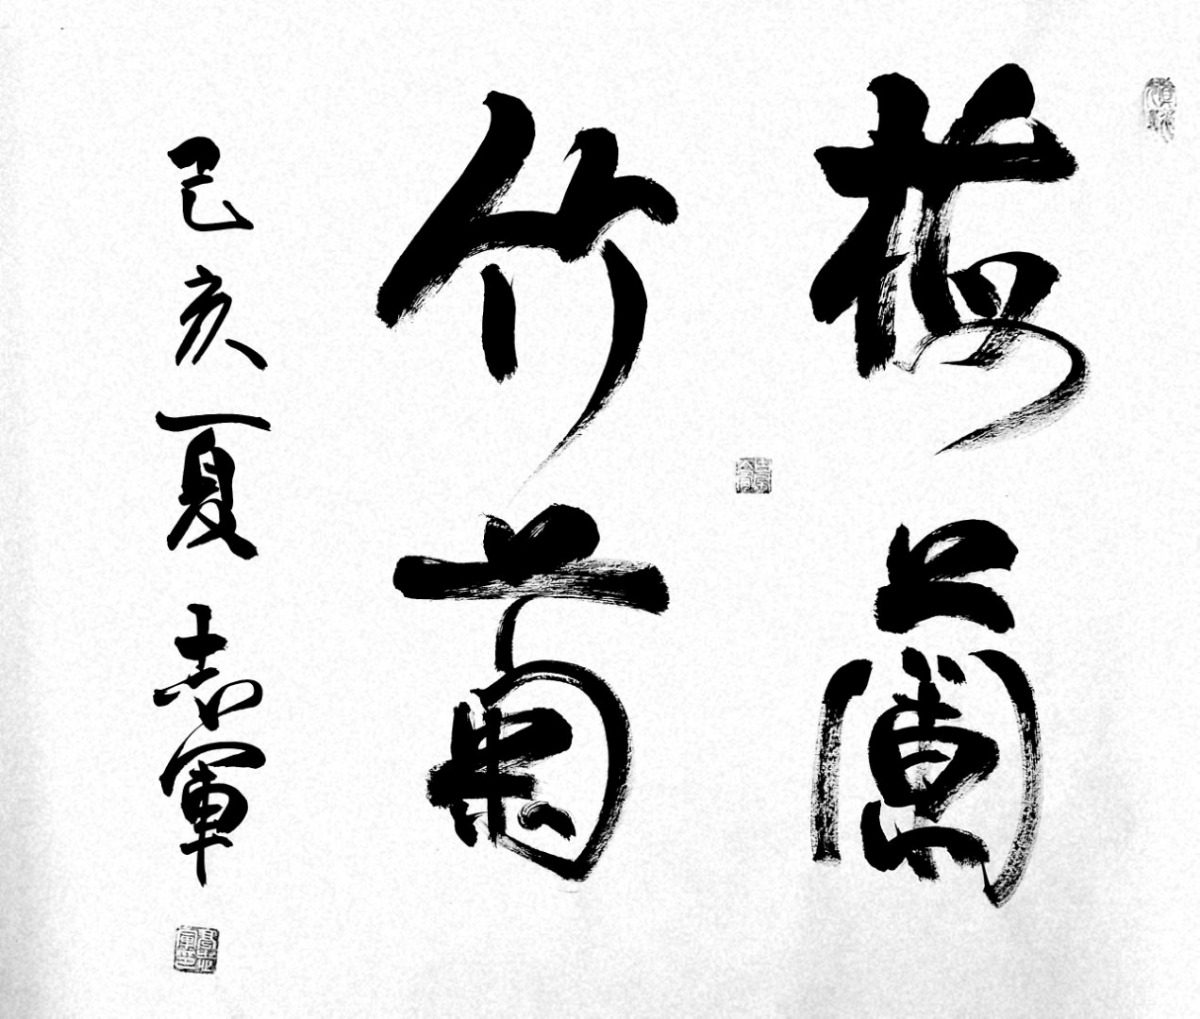 梅蘭
竹菊
己亥夏志軍